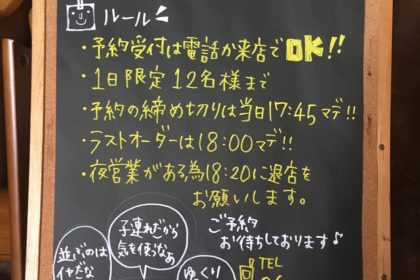 ルール
・予約受付は電話か来店でOK!!
・1日限定12名様まで
・予約の締め切りは当日17:45マデ!!
・ラストオーダーは18:00マデ!!
・夜営業がある為18:20に退店を
お願いします。
ご予約
お待ちしております♪
子連れだから
気を使うなぁ
並ぶのは
イヤだな
ゆっくり
TEL